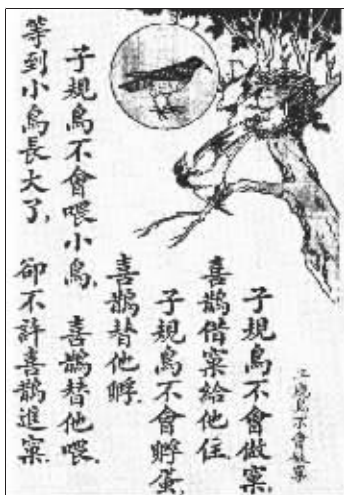 子規鳥不會做窠
子規鳥不會做窠,
喜鵲借窠給他住.
子規鳥不會孵蛋,
喜鵲替他孵.
子規鳥不會喂小鳥, 喜鵲替他喂.
等到小鳥長大了, 卻不許喜鵲進窠.